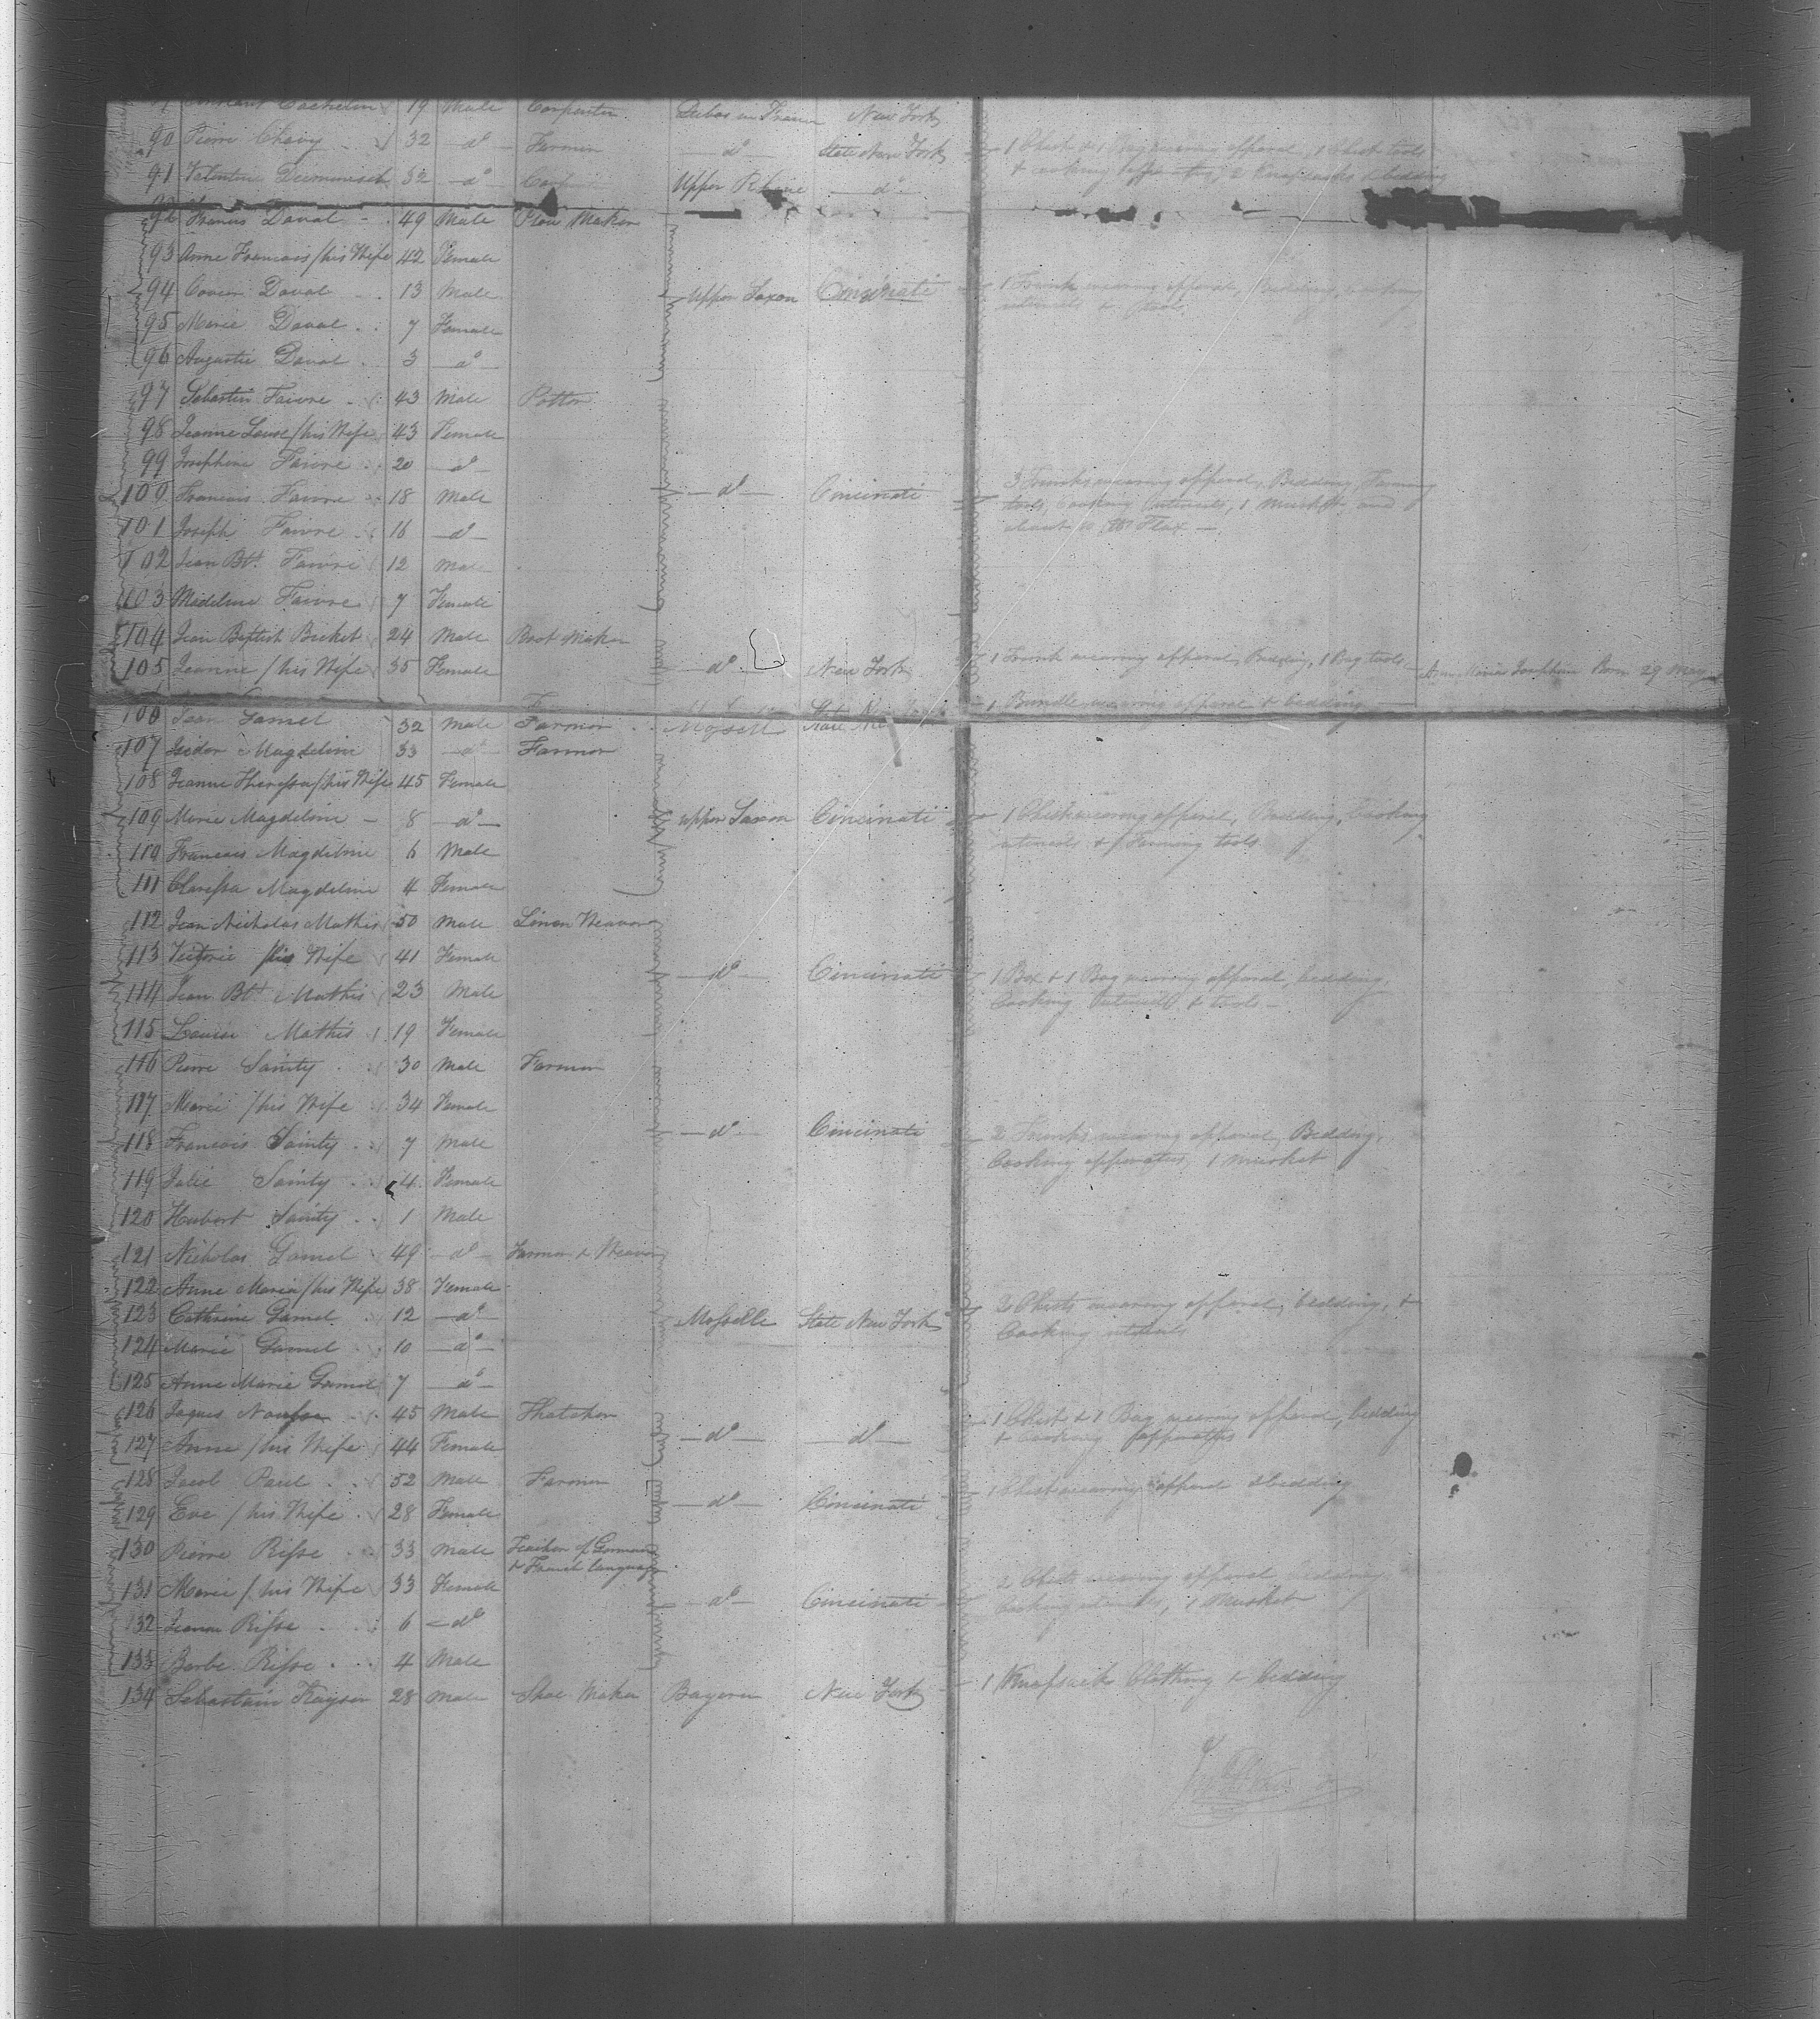 19 Male Carpenter New York
90 Pierre Chevy 32 do Farmer do State New York 1 Chest & 1 Bag wearing apparel, 1 Chest tools
91 Valentine 32 do Upper Rhine do & cooking apparatus, 2 Knapsacks & bedding
92 Francis Daval 49 Male Plow Maker
93 Anne Francois / his Wife 42 Female
94 Daval 13 Male Upper Saxon Cincinati 1 Trunk wearing apparel, Bedding, cooking
utensils & tools
95 Marie Daval 7 Female
96 Augustie Daval 3 do
97 Sebastin Faivre 43 Male Potter
98 Jeanne Louse / his Wife 43 Female
99 Josephine Faivre 20 do
100 Francois Faivre 18 Male do Cincinati 3 Trunks wearing apparel, Bedding, Farming
tools, Cooking Utensils, 1 Musket, and
about lbs Flax
101 Joseph Faivre 16 do
102 Jean Bt. Faivre 12 Male
103 Madeline Faivre 7 Female
104 Jean Baptist Bicket 24 Male Boot Maker
105 Jeanne / his Wife 35 Female do New York 1 Trunk wearing apparel, Bedding, 1 Bag tools Maria Josephine Born 29 May
106 Jean Gamel 32 Male Farmer Mosell State New 1 Bundle wearing apparel & bedding
107 Isidor Magdeline 33 do Farmer
108 Jeanne Theressa / his Wife 45 Female
109 Marie Magdeline 8 do Upper Saxon Cincinati 1 Chest wearing apparel, Bedding, Cooking
utensils & Farming tools
110 Francois Magdeline 6 Male
111 Claressa Magdeline 4 Female
112 Jean Nicholas Mathis 50 Male Linen Weaver
113 Victorie / his Wife 41 Female do Cincinati 1 Box & 1 Bag wearing apparel, bedding,
Cooking Utensils & tools
114 Jean Bt. Mathis 23 Male
115 Louise Mathis 19 Female
116 Pierre Sainty 30 Male Farmer
117 Marie / his Wife 34 Female
118 Francois Sainty 7 Male do Cincinati 2 Trunks wearing apparel, Bedding,
Cooking apparatus, 1 musket
119 Julie Sainty 4 Female
120 Hubert Sainty 1 Male
121 Nicholas Gamel 49 do Farmer & Weaver
122 Anne Maria / his Wife 38 Female
123 Cathrine Gamel 12 do Mosselle State New York 2 Chests wearing apparel, bedding, &
Cooking utensils
124 Marie Gamel 10 do
125 Anne Marie Gamel 7 do
126 Jaques 45 Male Thatcher 1 Chest & 1 Bag wearing apparel, bedding
& Cooking apparatus
127 Anne / his Wife 44 Female do do
128 Jacob Paul 52 Male Farmer 1 Chest wearing apparel & bedding
129 Eve / his Wife 28 Female do Cincinati
130 Pierre Risse 33 Male Teacher of German
& French language
131 Marie / his Wife 33 Female do Cincinati 2 Chests wearing apparel, bedding,
Cooking utensils, 1 Musket
132 Risse 6 do
133 Barbe Risse 4 Male
134 Sebastain Kayser 28 Male Shoe Maker Bayern New York 1 Knapsack Clothing & bedding